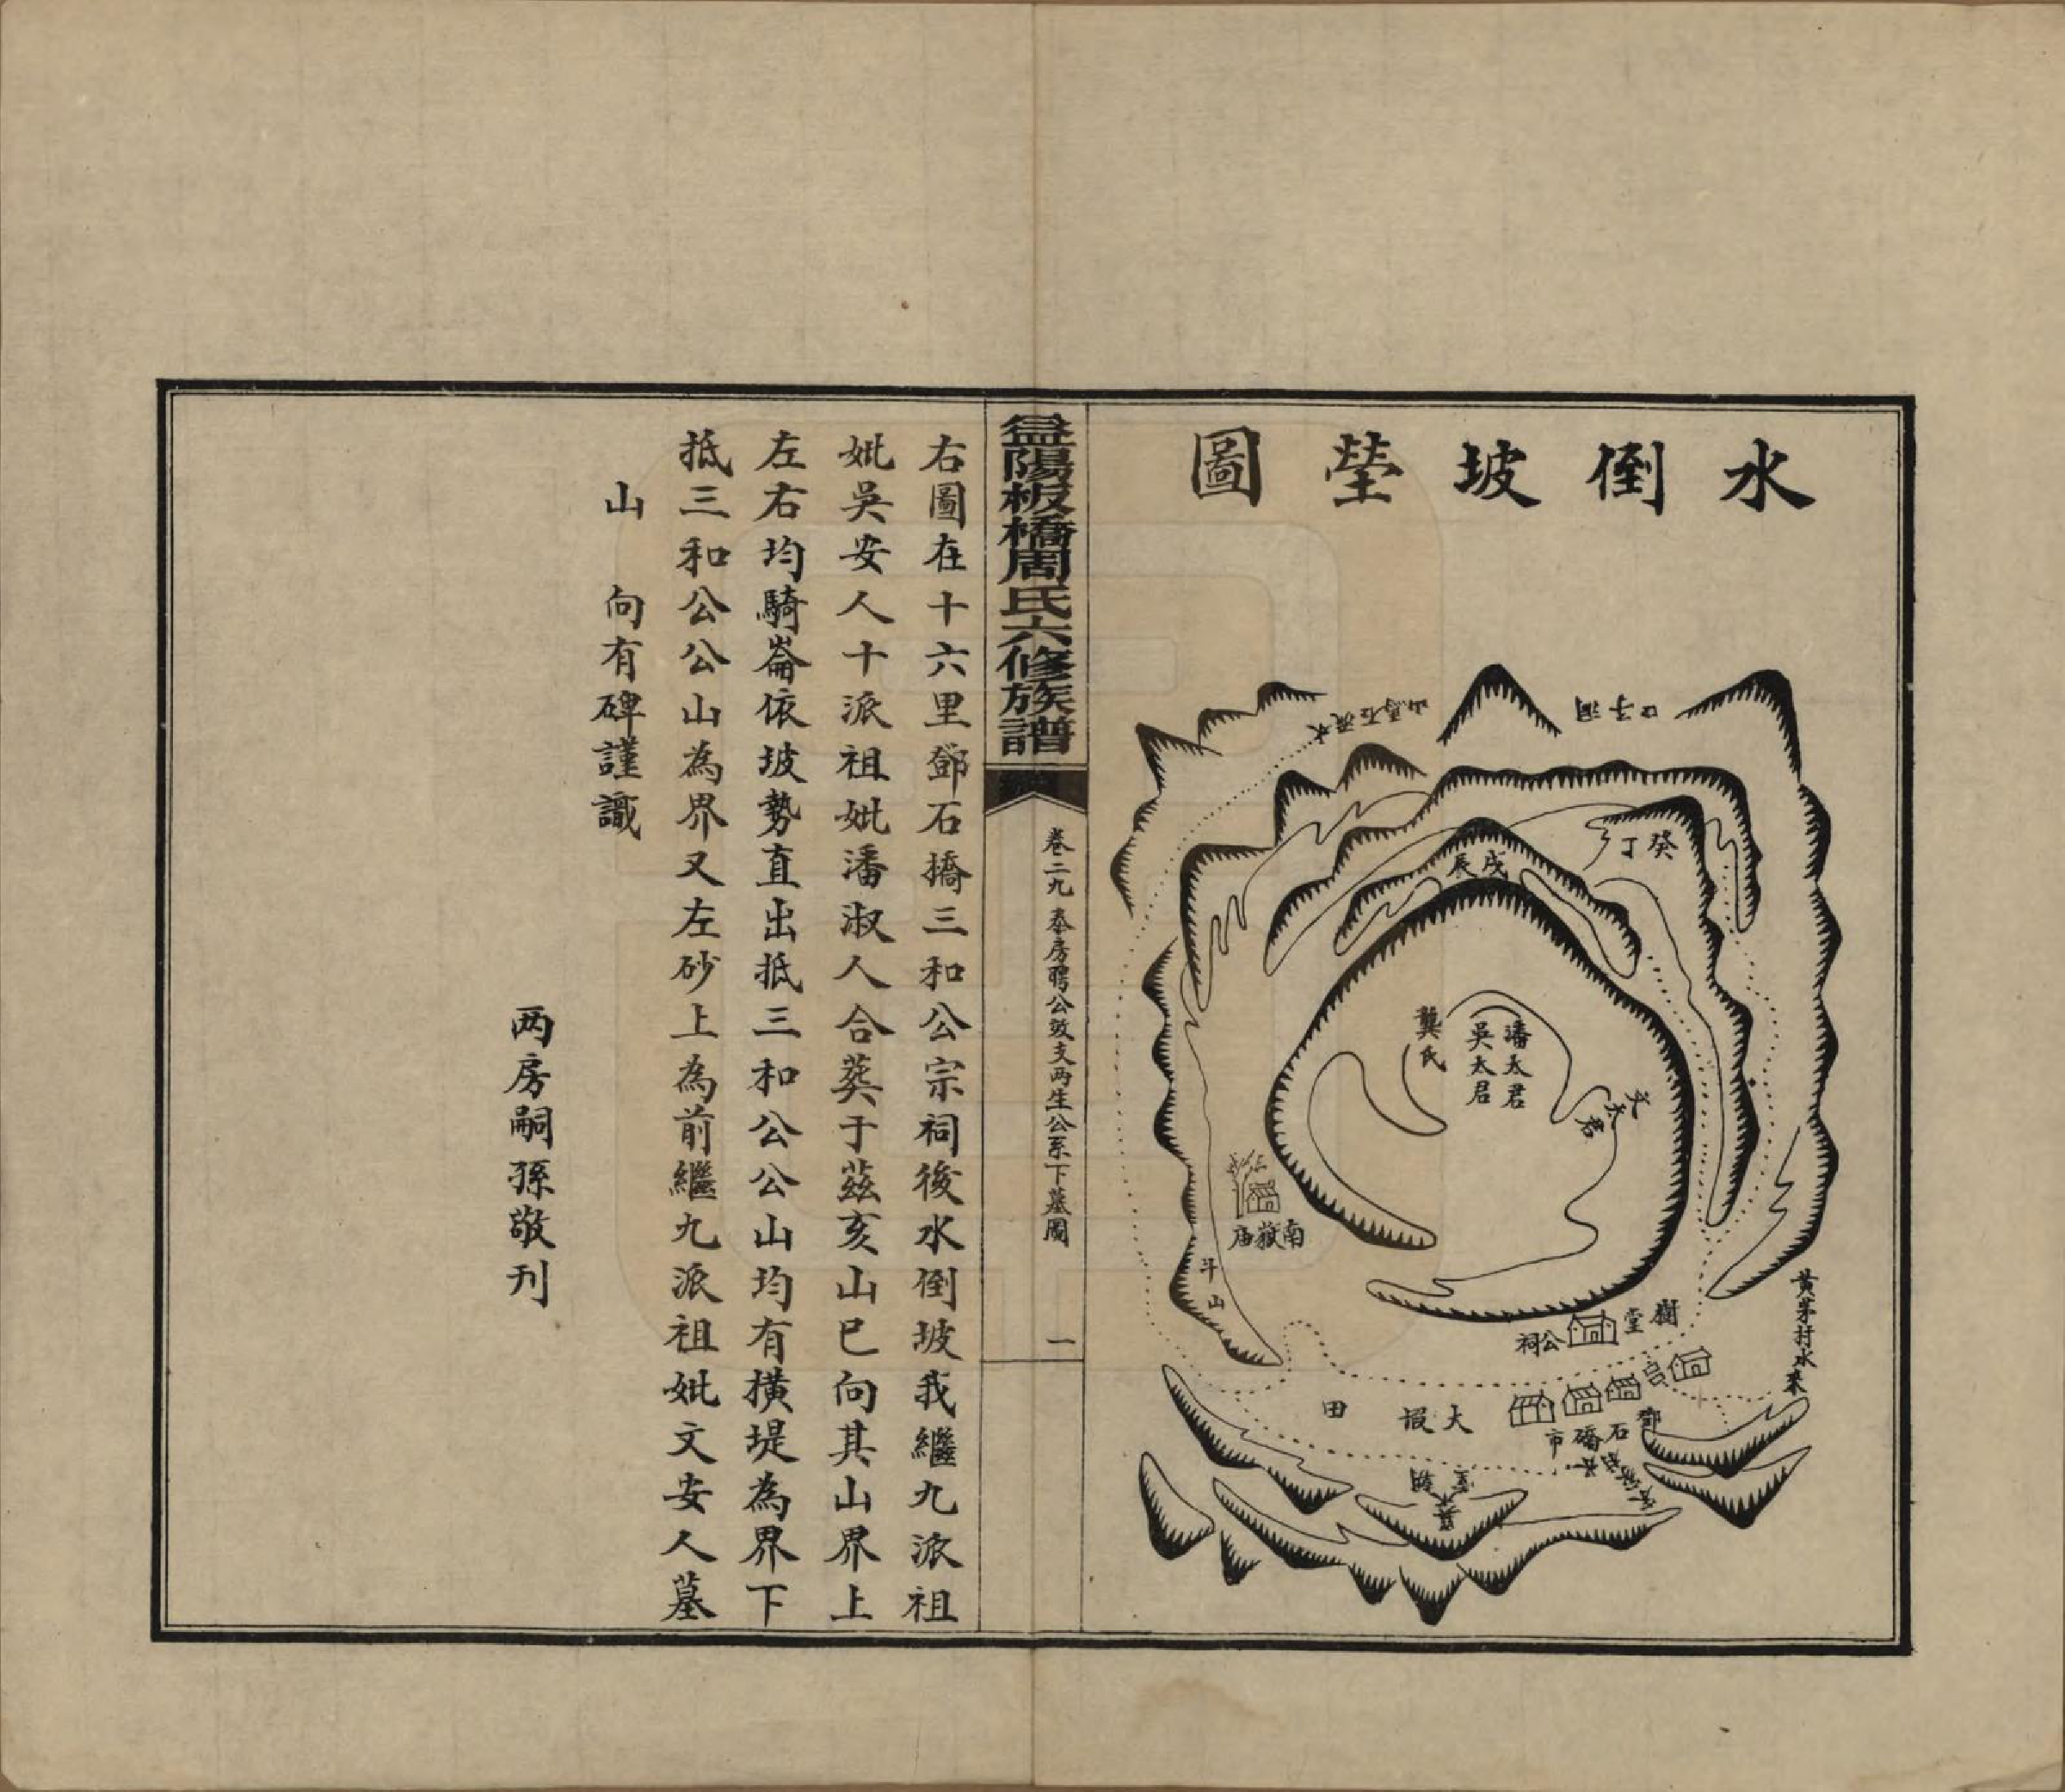 水倒坡塋圖
洞子口
山馬石流水
癸丁
戌辰
潘太君
吳太君
龔氏
文太君
南嶽庙
斗山
樹堂公祠
黃茅村水來
鄧石磻市
大塅田
益陽板橋周氏六修族譜
卷二九 奉房聘公效支两生公系下墓圖
一
右圖在十六里鄧石擠三和公宗祠後水倒坡我繼九派祖
妣吳安人十派祖妣潘淑人合葬于茲亥山巳向其山界上
左右均騎崙依坡勢直出抵三和公公山均有横堤為界下
抵三和公公山為界又左砂上為前繼九派祖妣文安人墓
山 向有碑謹識
两房嗣孫敬刊